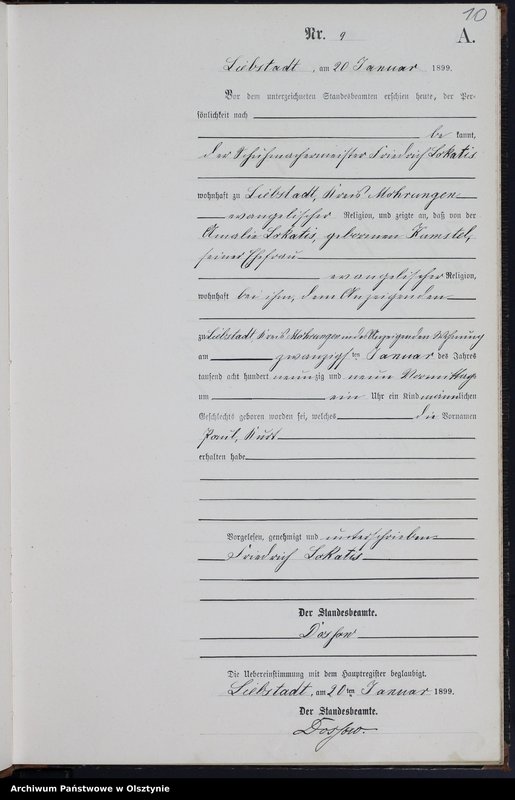 10
Nr. 9
A.
Liebstadt, am 20 Januar 1899.
Vor dem unterzeichneten Standesbeamten erschien heute, der Per-
sönlichkeit nach
be kannt,
der Schuhmachermeister Friedrich Lokatis
wohnhaft zu Liebstadt, Kreis Mohrungen
evangelischer Religion, und zeigte an, daß von der
Amalie Lokatis, geborenen
seiner Ehefrau
evangelischer Religion,
wohnhaft bei ihm, dem Anzeigenden
zu Liebstadt, Kreis Mohrungen in des Anzeigenden Wohnung
am zwanzigsten Januar des Jahres
tausend acht hundert neunzig und neun Vormittags
um ein Uhr ein Kind männlichen
Geschlechts geboren worden sei, welches die Vornamen
Paul, Kurt
erhalten habe
Vorgelesen, genehmigt und unterschrieben
Friedrich Lokatis
Der Standesbeamte.
Dossow
Die Uebereinstimmung mit dem Hauptregister beglaubigt.
Liebstadt, am 20ten Januar 1899.
Der Standesbeamte.
Dossow.
Archiwum Państwowe w Olsztynie